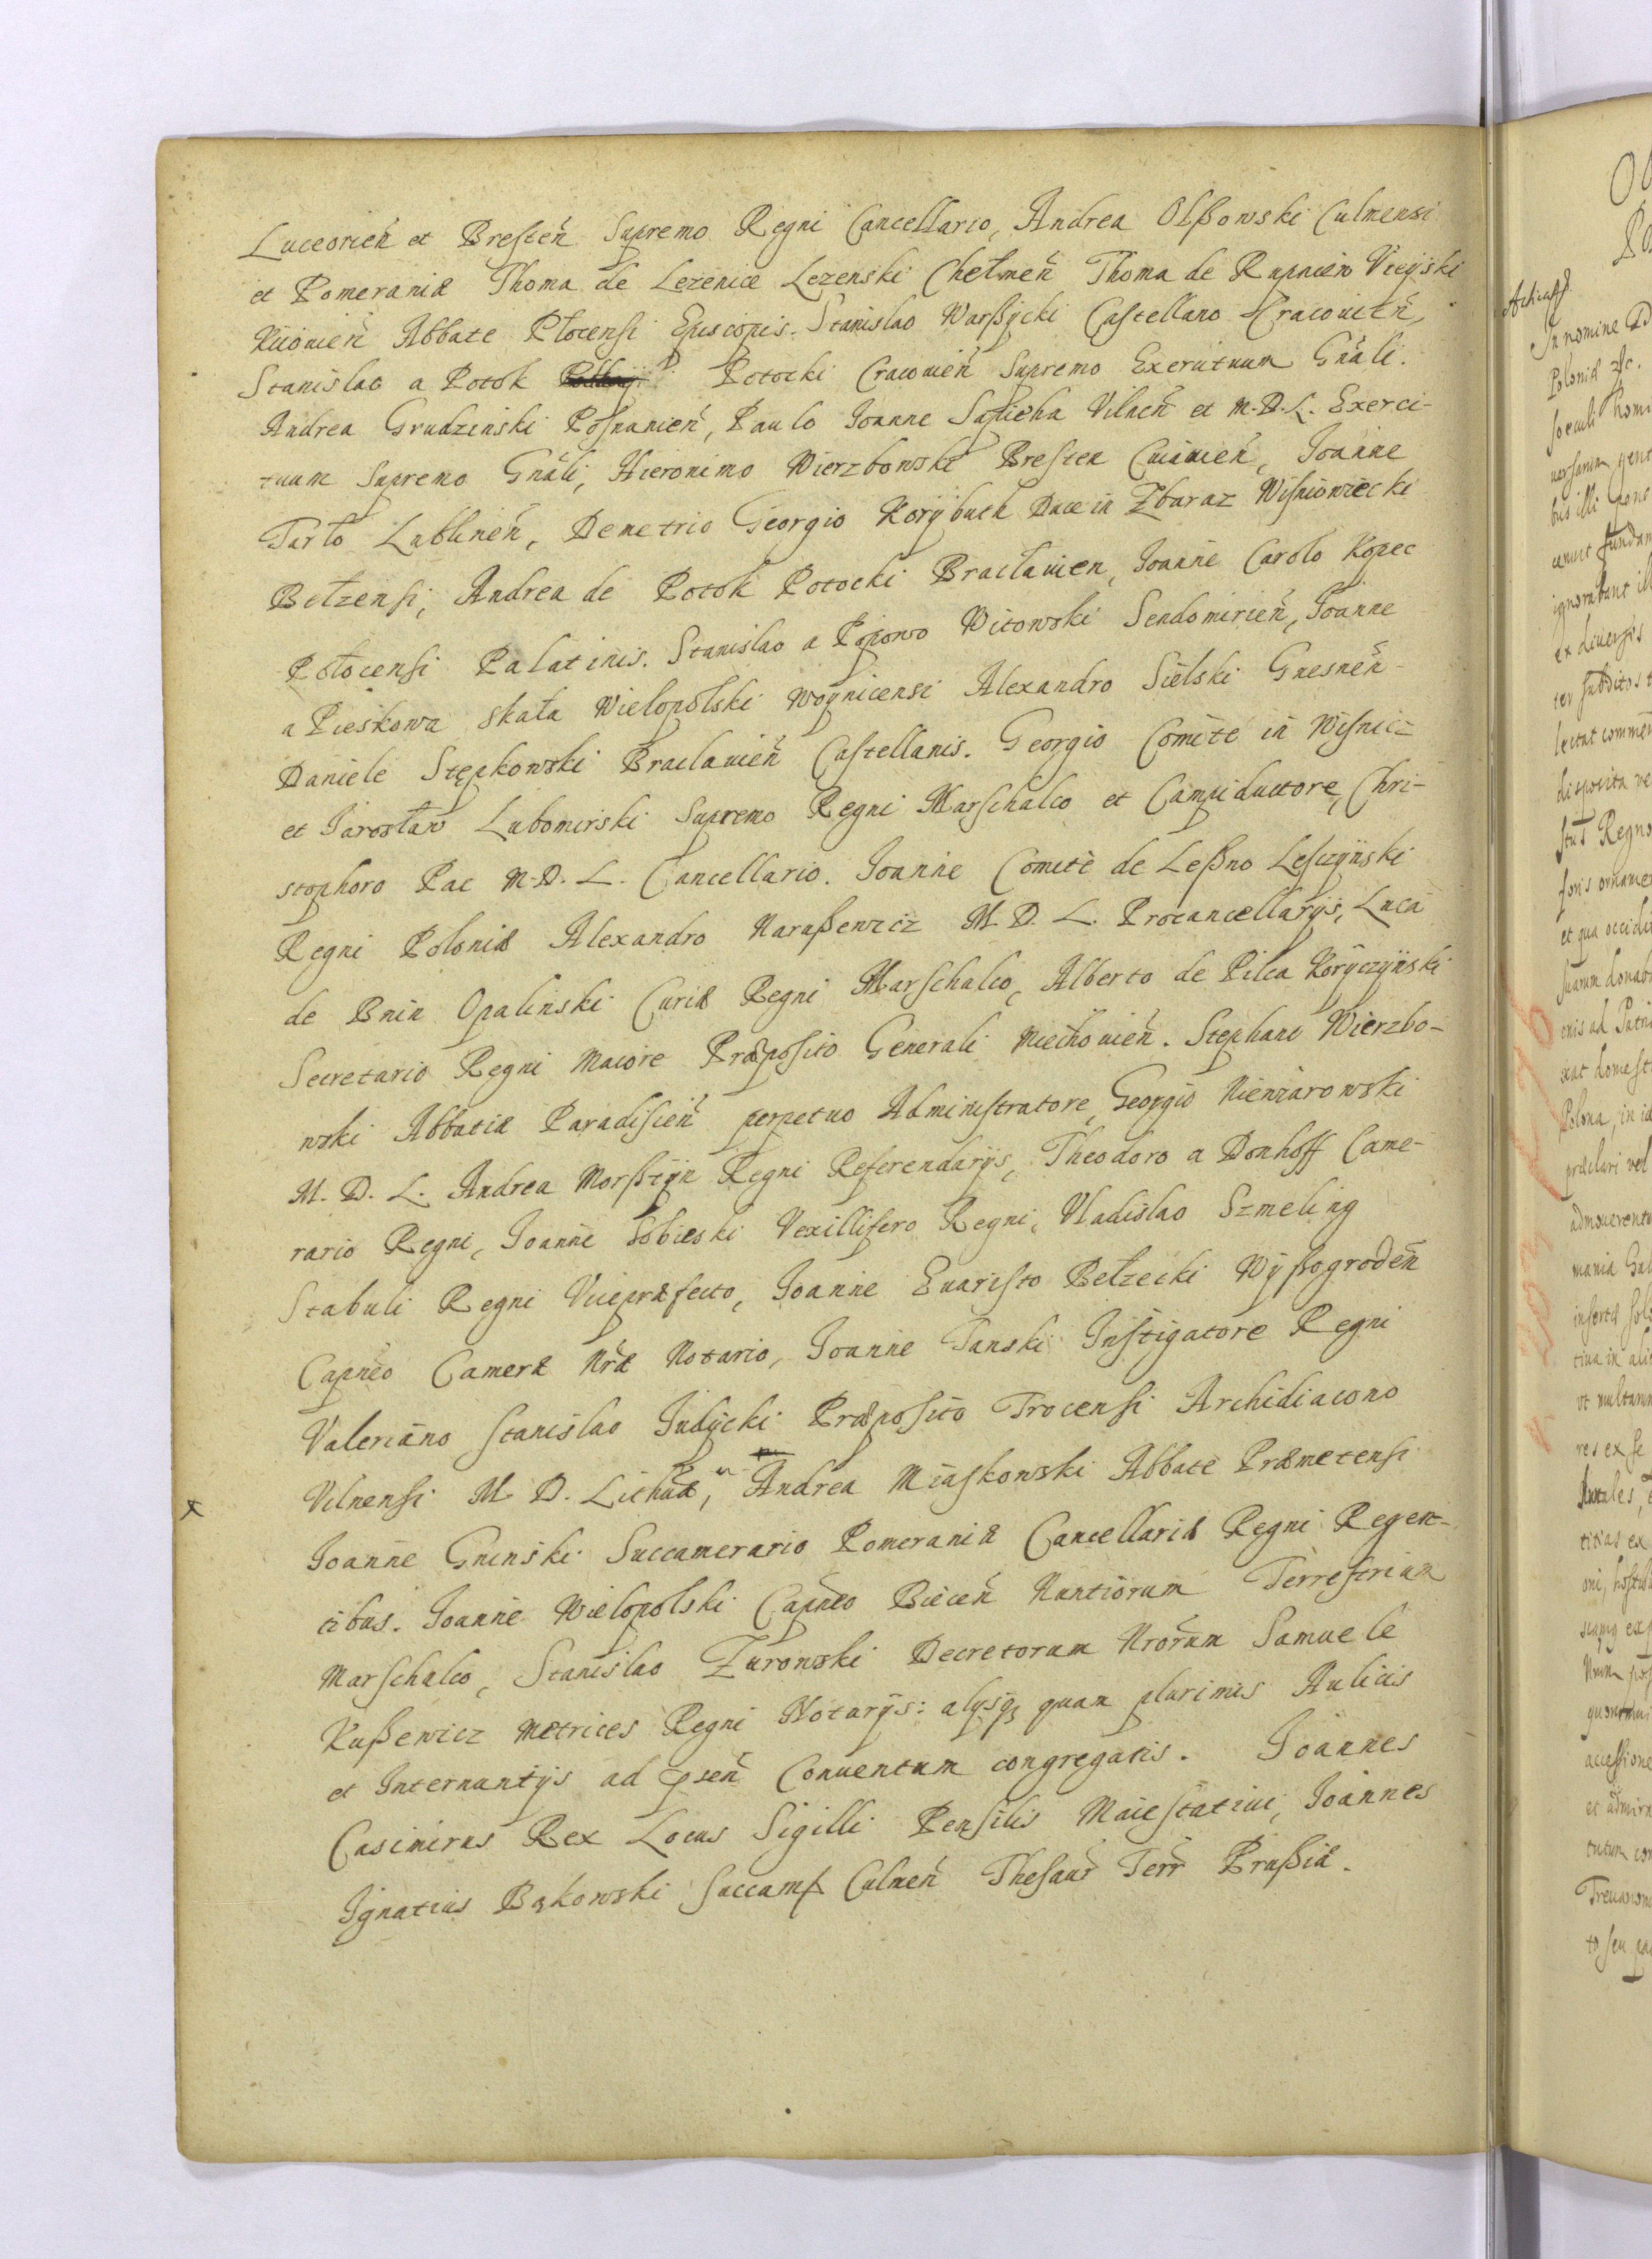 Luceorień et Bresteń Supremo Regni Cancellario, Andrea Olßowski Culmensi
et Pomeraniæ Thoma de Lezenice Lezenski Chełmeń Thoma de Rupniew Vieyski
Kiiowień Abbate Płocensi Episcopis. Stanislao Warßycki Castellano Cracovień,
Stanislao a Potok Potocki Cracovień Supremo Exercituum Gnãli.
Andrea Grudzinski Posnanień, Paulo Joanne Sapieha Vilneń et M. D. L. Exerci-
tuum Supremo Gnãli, Hieronimo Wierzbowski Bresten Cuiavień, Joanne
Tarło Lublineń, Demetrio Georgio Korybuth Duce in Zbaraz Wisniowiecki
Bełzensi, Andrea de Potok Potocki Bracłavien, Joanne Carolo Kopec
Połocensi Palatinis. Stanislao a Popowo Witowski Sendomirień, Joanne
a Pieskowa skała Wielopolski Woynicensi Alexandro Sielski Gnesneń
Daniele Stępkowski Braclavień Castellanis. Georgio Comite in Wisnicz
et Jarosław Lubomirski Supremo Regni Marschalco et Campiductore, Chri-
stophoro Pac M. D. L. Cancellario. Joanne Comite de Leßno Lesczyński
Regni Poloniæ Alexandro Narußewicz M. D. L. Procancellarijs, Luca
de Bnin Opalinski Curiæ Regni Marschalco, Alberto de Pilca Koryczyński
Secretario Regni Maiore Præposito Generali Miechovień. Stephano Wierzbo-
wski Abbatiæ Paradisień perpetuo Administratore, Georgio Niemiarowski
M. D. L. Andrea Morßtyn Regni Referendarijs, Theodoro a Donhoff Came-
rario Regni, Joanne Sobieski Vexillifero Regni, Vladislao Szmeling
Stabuli Regni Vicepræfecto, Joanne Evaristo Bełzecki Wyßogrodeń
Capnẽo Cameræ Nrã Notario, Joanne Tanski Instigatore Regni
Valeriano Stanislao Judycki Præposito Trocensi Archidiacono
Vilnensi M. D. Lithuæ, Andrea Miaskowski Abbate Præmetensi
x
Joanne Gninski Succamerario Pomeraniæ Cancellariæ Regni Regen-
tibus. Joanne Wielopolski Capnẽo Bieceń Nuntiorum Terrestrium
Marschalco, Stanislao Zurowski Decretorum Nrorum Samuele
Kußewicz Metrices Regni Notarijs: alysq quam plurimis Aulicis
et Internuntijs ad pseń Conventum congregatis. Joannes
Casimirus Rex Locus Sigilli Pensilis Maiestativi, Joannes
Ignatius Bąkowski Succam Culmeń Thesaur Terr Prußiæ.